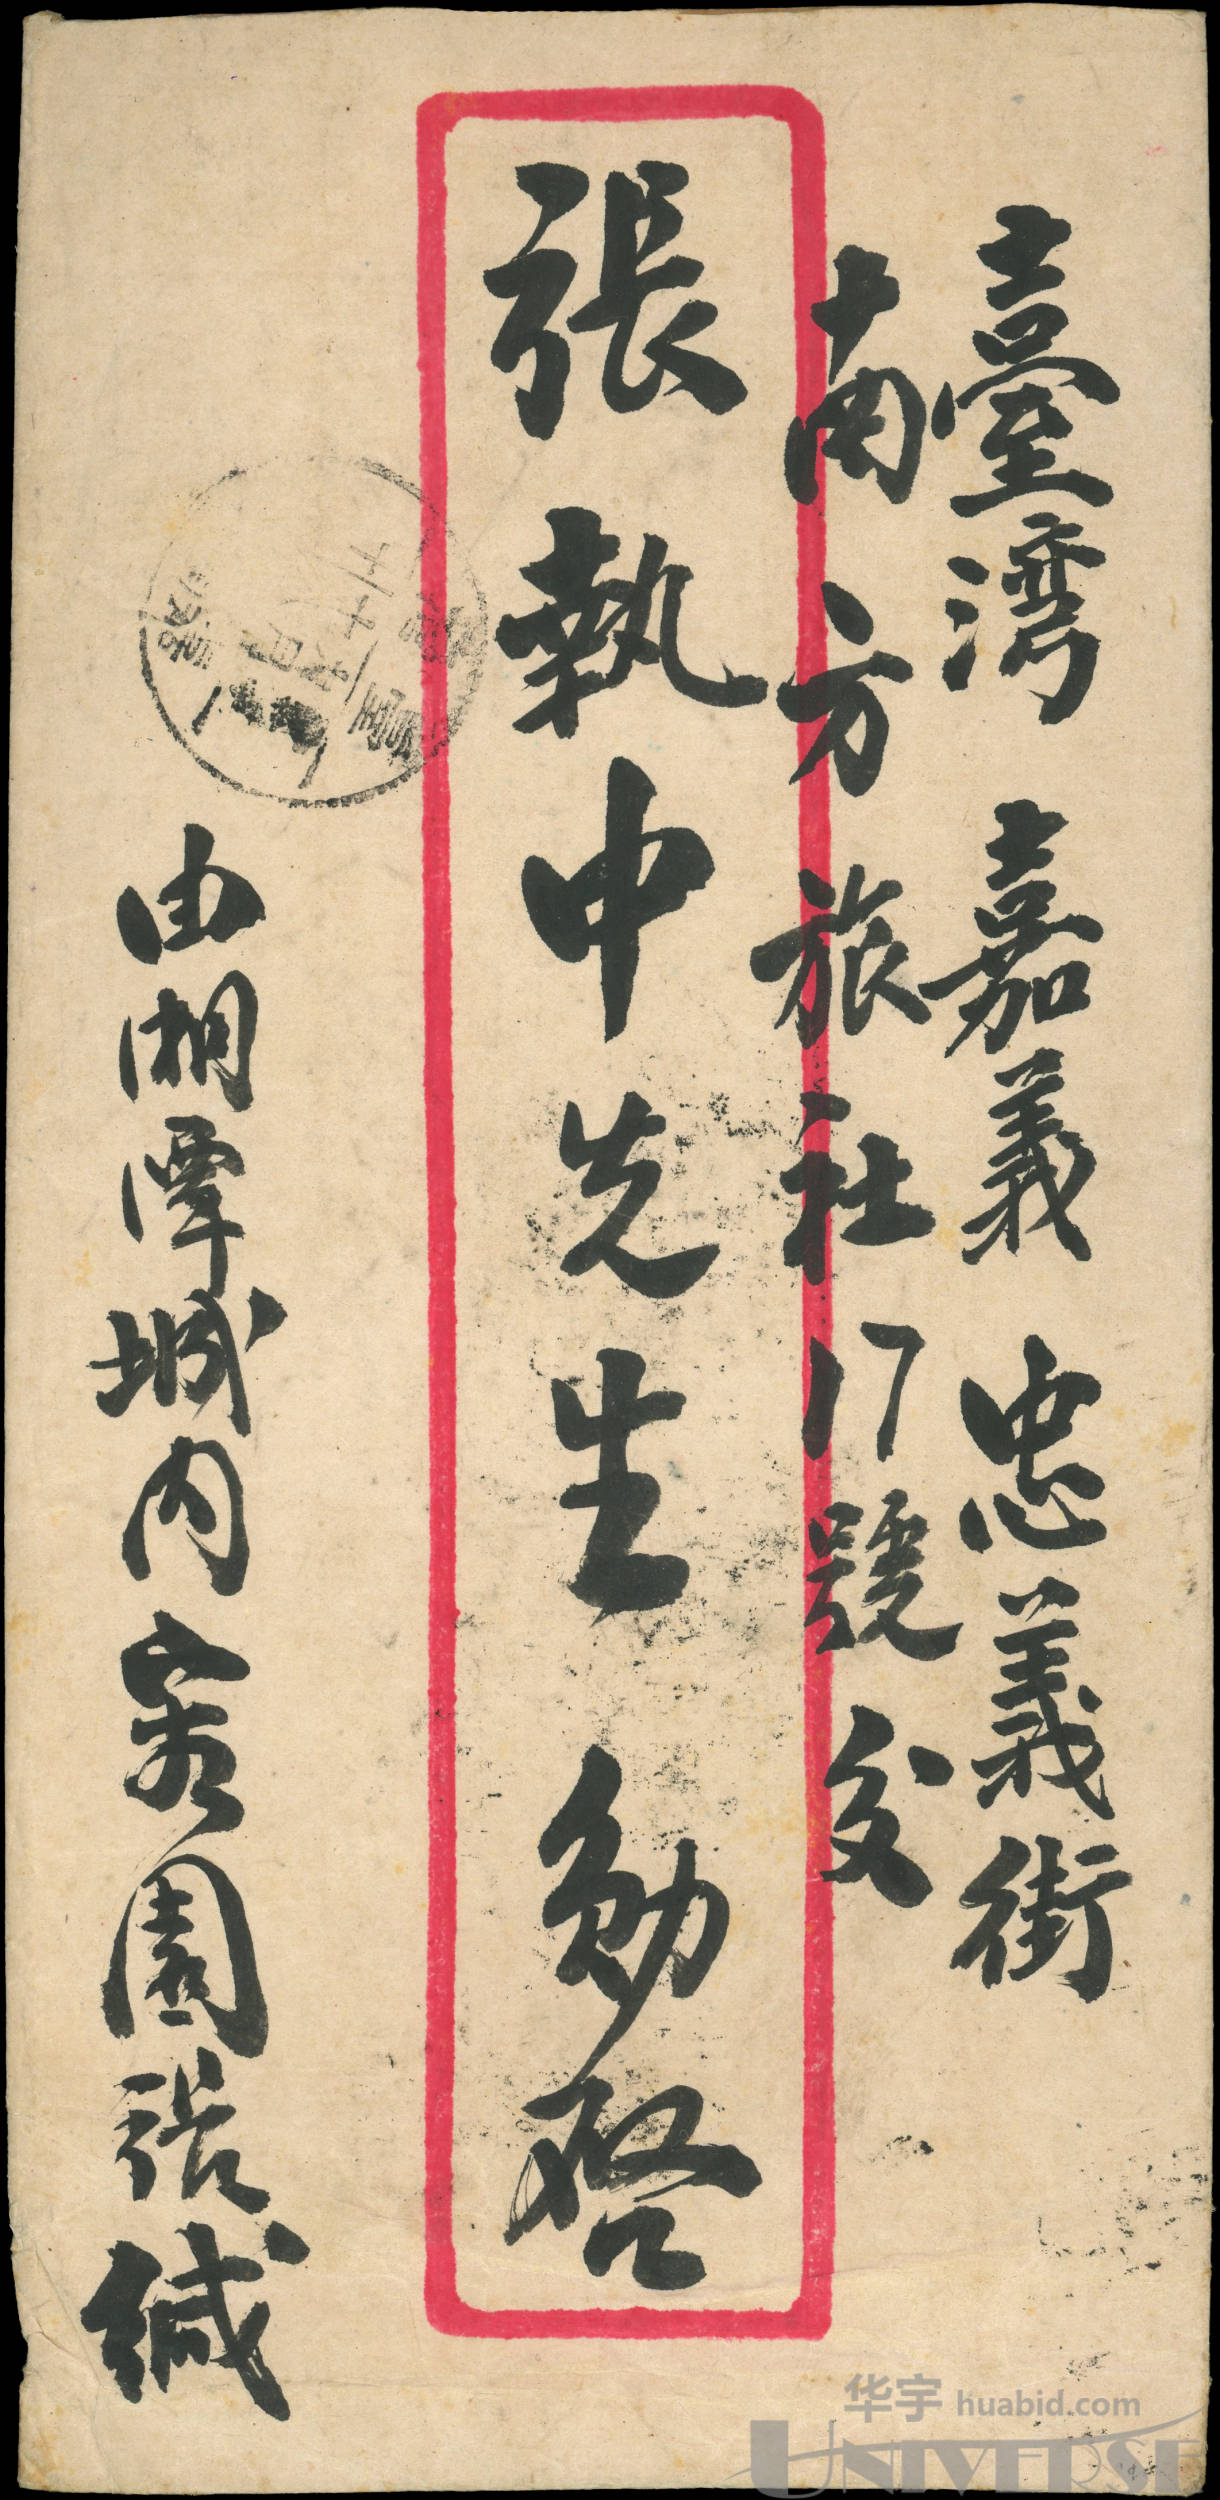 臺湾 嘉義 忠義街
南方旅社17號交
張執中先生 勛啓
由湘潭城内賓園張緘
华宇 huabid.com
UNIVERSE